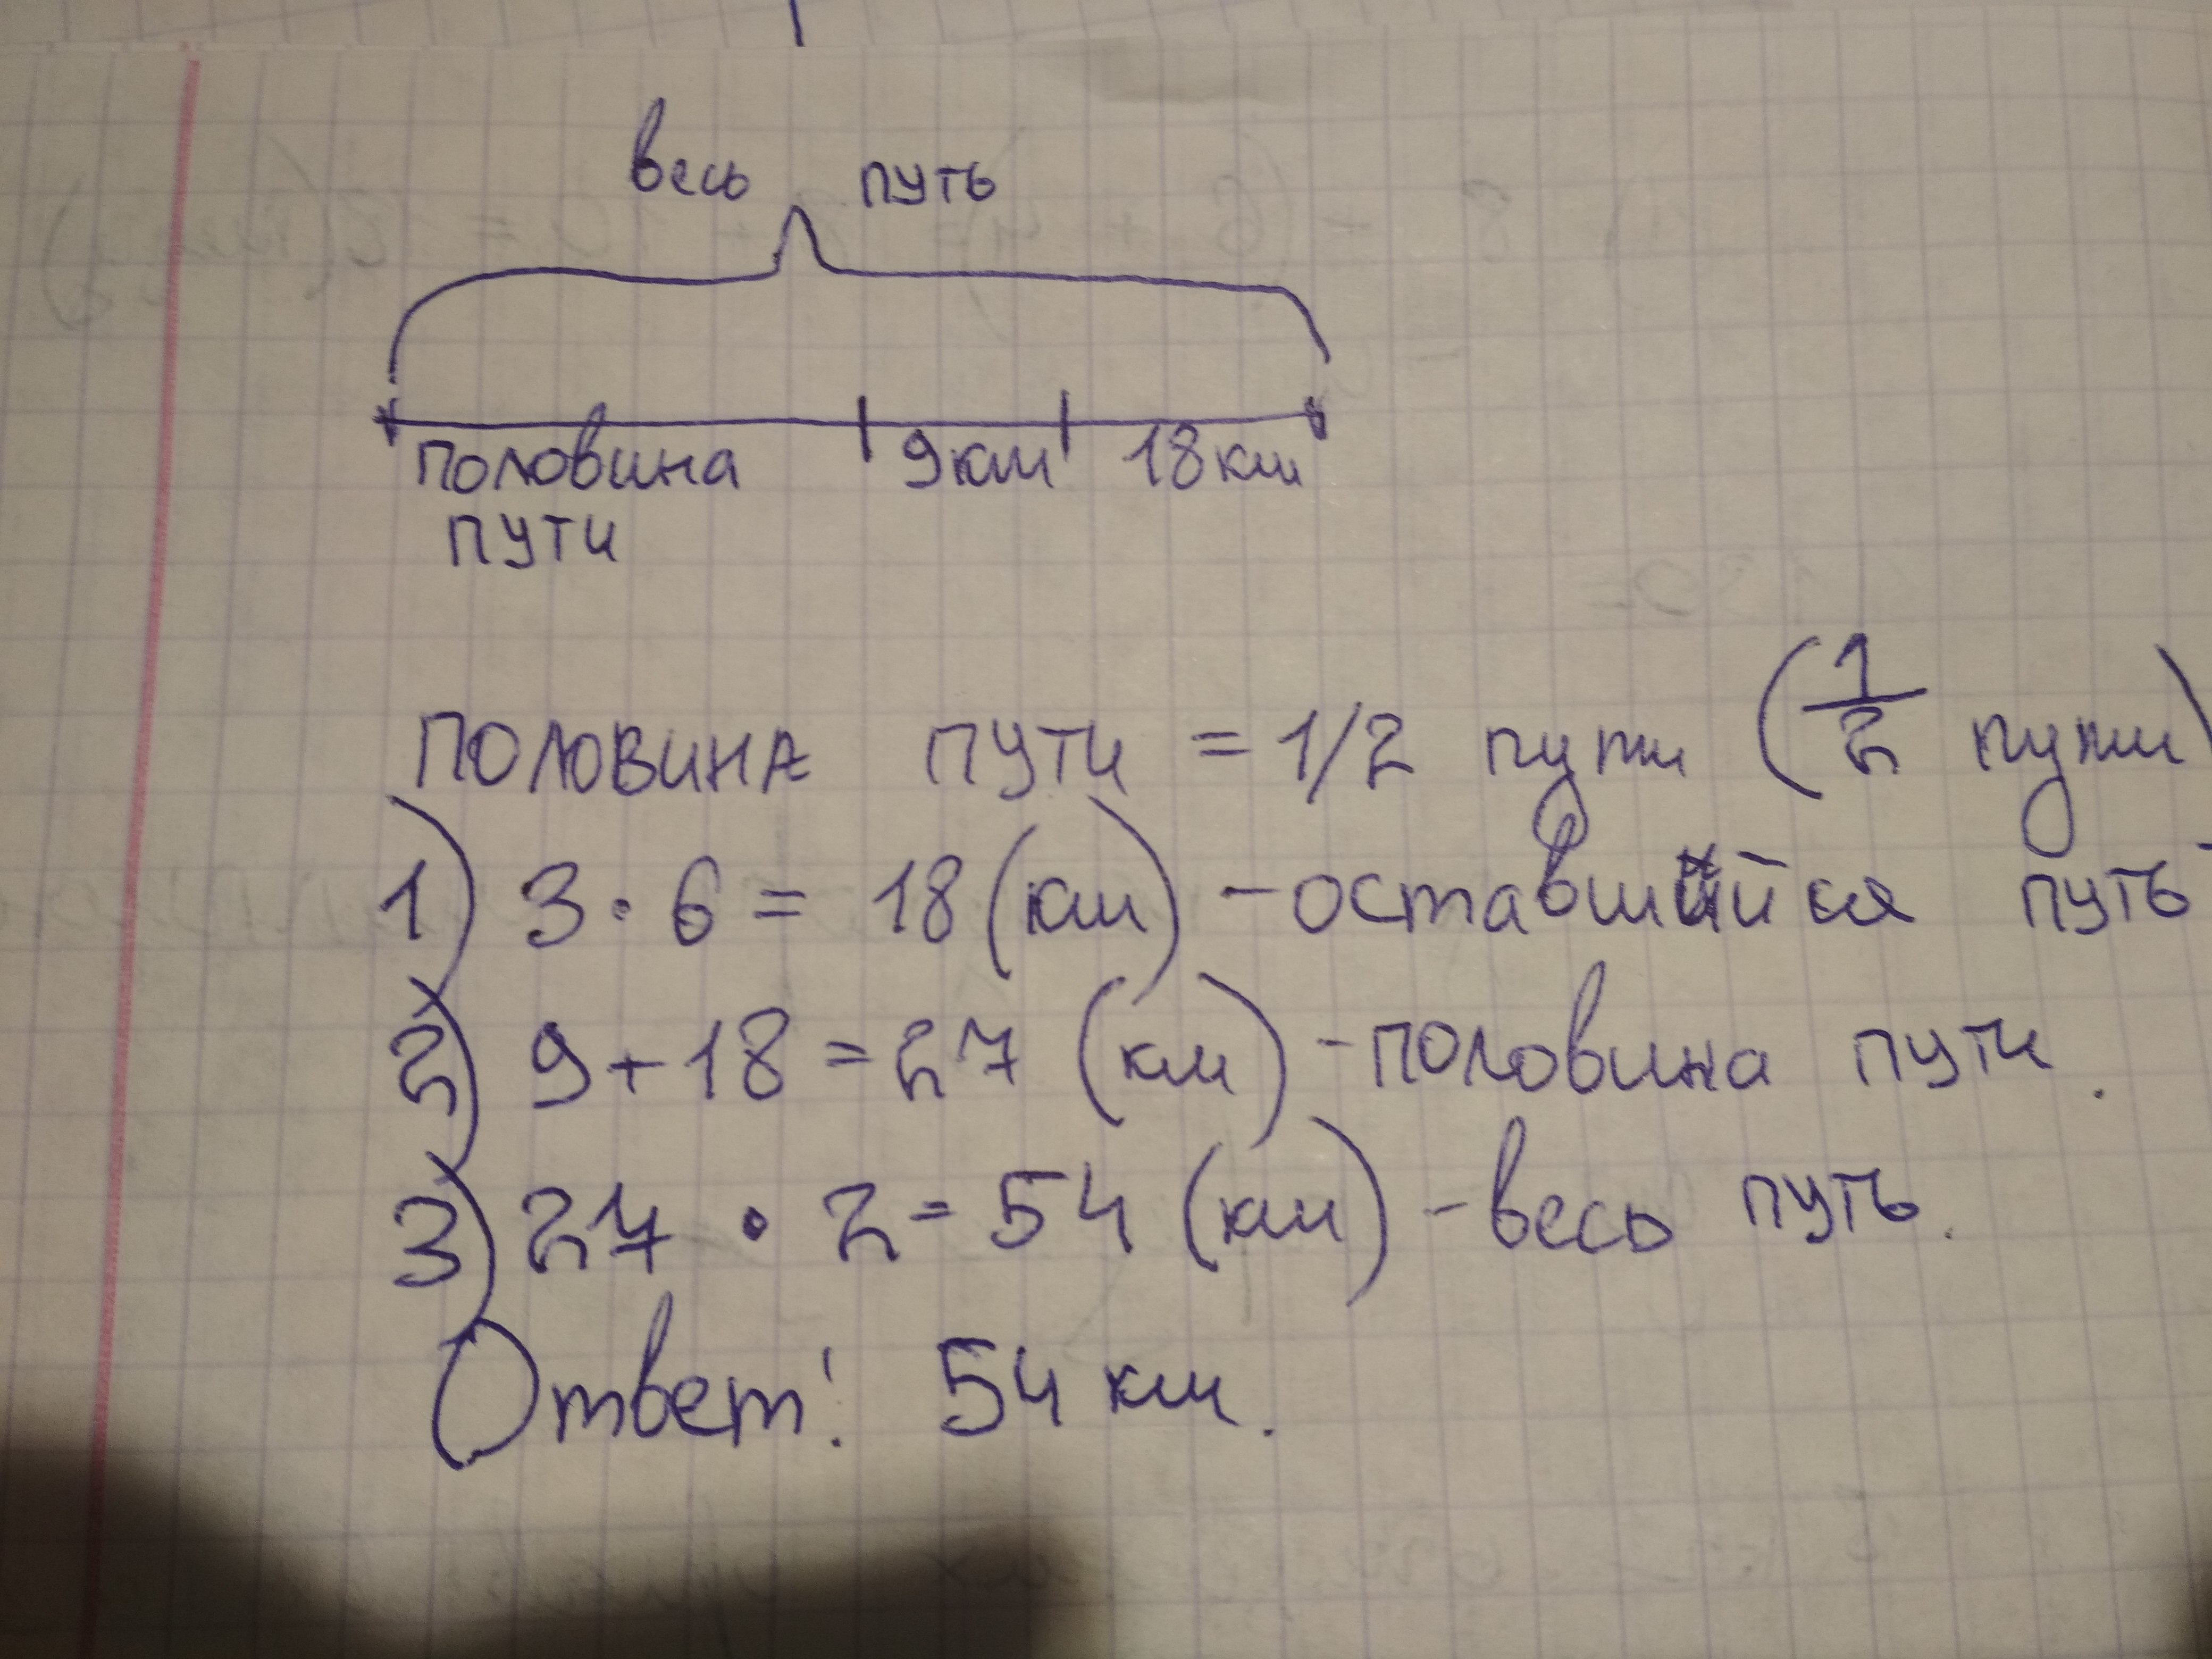 весь путь
половина 9км 18км
пути
половина пути = 1/2 пути (1/2 пути)
1) 3 · 6 = 18 (км) - оставшийся путь
2) 9 + 18 = 27 (км) - половина пути.
3) 27 · 2 = 54 (км) - весь путь.
Ответ: 54 км.